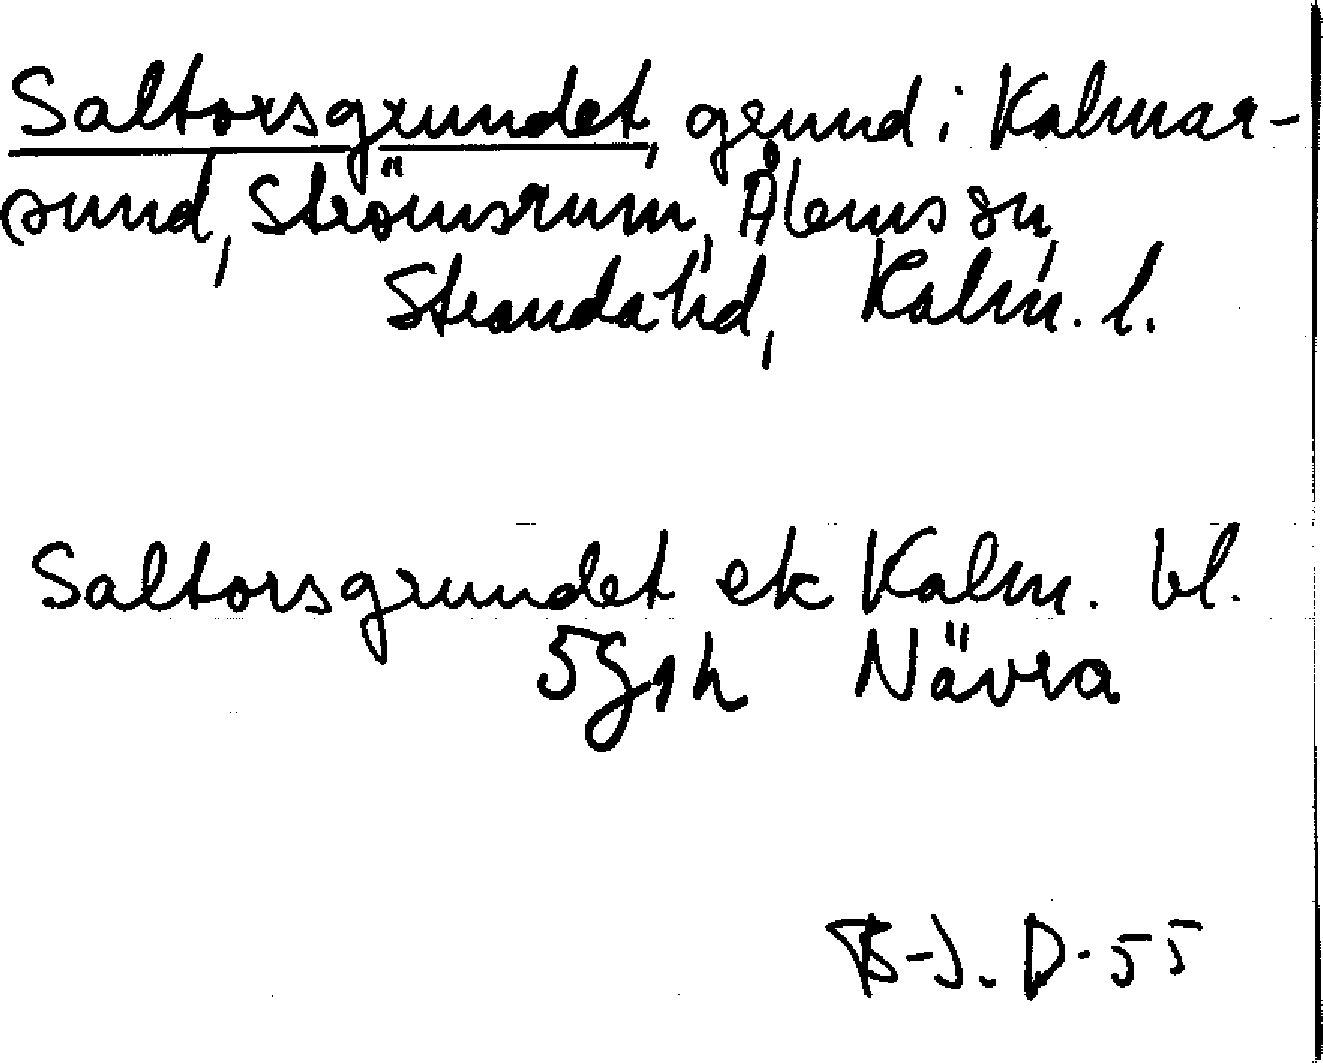 Saltorsgrundet, grund i Kalmar-
sund, Strömsrum, Ålems sn,
Stranda hd, Kalm. l.
Saltorsgrundet ek Kalm. bl.
5G1h Nävra
B-J. D. 55